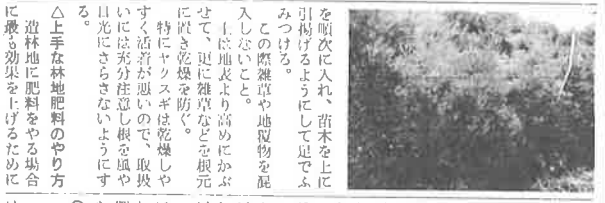 を順次に入れ、苗木を上に
引揚げるようにして足でふ
みつける。
この際雑草や地覆物を混
入しないこと。
土は地表より高めにかぶ
せて、更に雑草などを根元
に置き乾燥を防ぐ。
特にヤクスギは乾燥しや
すく活着が悪いので、取扱
いには充分注意し根を風や
日光にさらさないようにす
る。
△上手な林地肥料のやり方
造林地に肥料をやる場合
に最も効果を上げるために